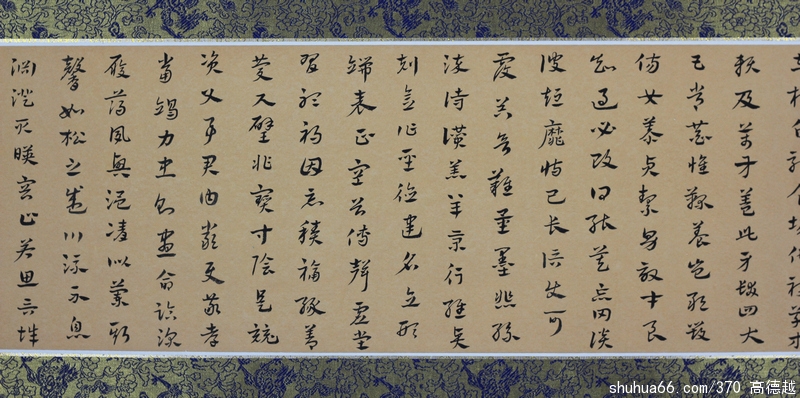 在樹白駒食場化被草木
賴及萬方蓋此身髮四大
五常恭惟鞠養豈敢毀
傷女慕貞潔男效才良
知過必改得能莫忘罔談
彼短靡恃己長信使可
覆器欲難量墨悲絲
染詩讚羔羊景行維賢
剋念作聖德建名立形
端表正空谷傳聲虛堂
習聽禍因惡積福緣善
慶尺璧非寶寸陰是競
資父事君曰嚴與敬孝
當竭力忠則盡命臨深
履薄夙興溫凊似蘭斯
馨如松之盛川流不息
淵澄取暎容止若思言辭
shuhua66.com/370 高德越